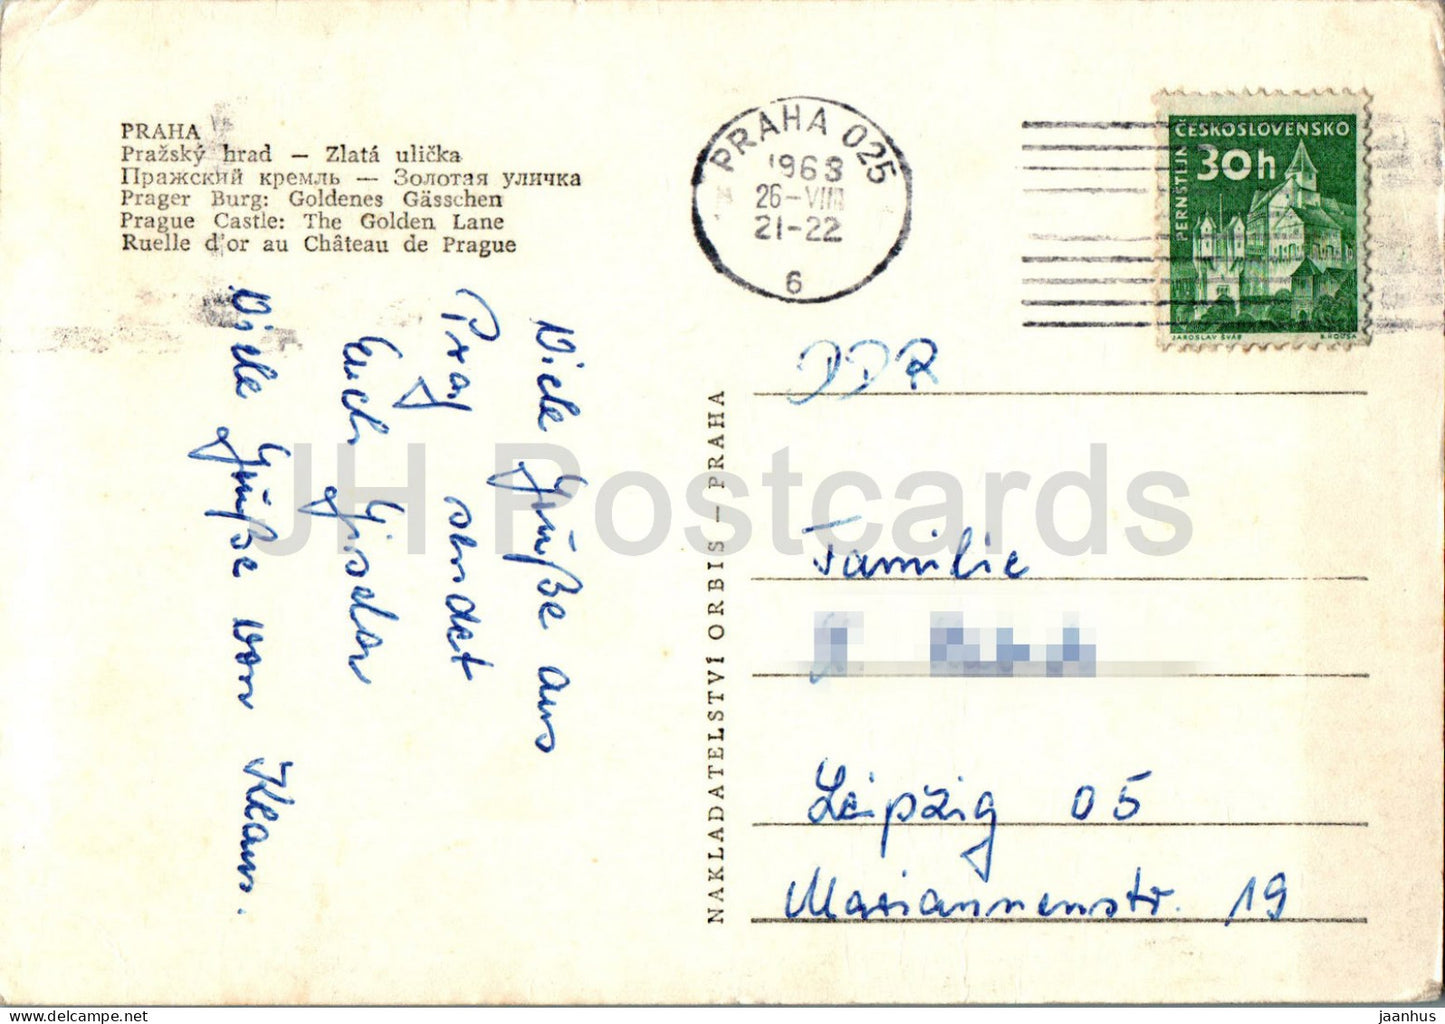 PRAHA
Pražský hrad — Zlatá ulička
Пражский кремль — Золотая уличка
Prager Burg: Goldenes Gässchen
Prague Castle: The Golden Lane
Ruelle d'or au Château de Prague
Viele Grüße aus
Prag sendet
Euch Giselar
Viele Grüße von Klaus.
NAKLADATELSTVÍ ORBIS — PRAHA
PRAHA 025
1963
26-VIII
21-22
6
ČESKOSLOVENSKO
30h
PERNŠTEJN
JAROSLAV ŠVÁB
DDR
Familie
Leipzig 05
Mariannenstr. 19
JH Postcards
www.delcampe.net
jaanhus